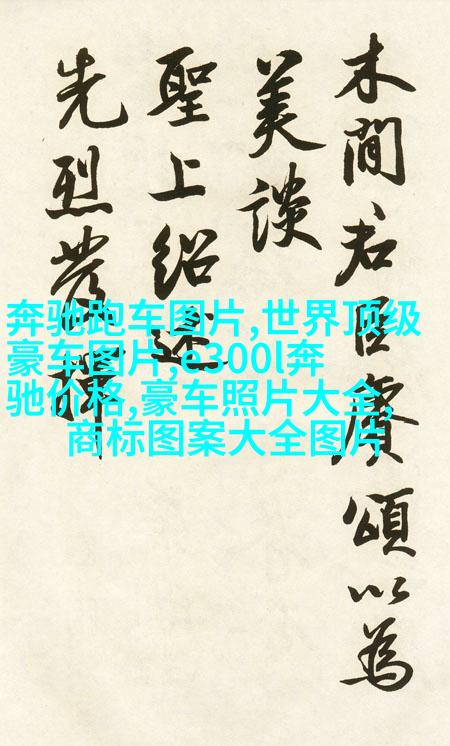 木間君臣賡頌以為
美談
聖上紹述
先烈
奔驰跑车图片,世界顶级
豪车图片,e300l奔
驰价格,豪车照片大全,
商标图案大全图片